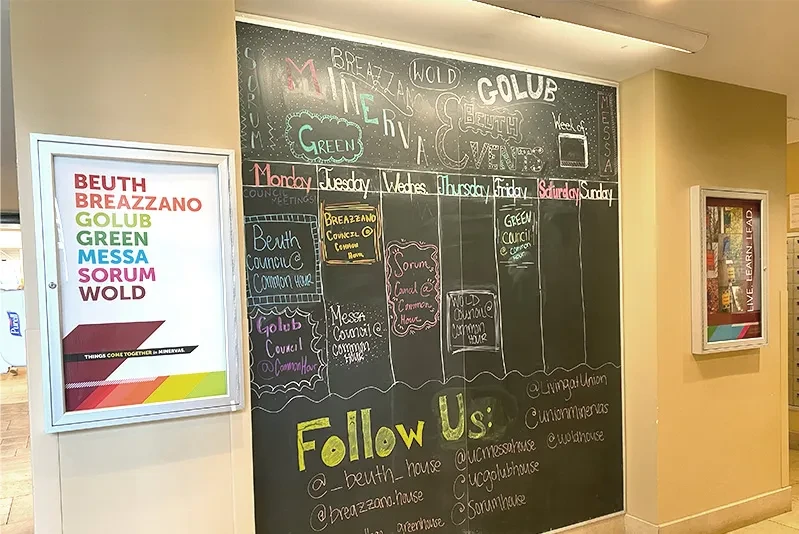 BEUTH
BREAZZANO
GOLUB
GREEN
MESSA
SORUM
WOLD
THINGS COME TOGETHER in MINERVAS.
Purell
SORUM
BREAZZANO
WOLD
GOLUB
MINERVA
GREEN
BEUTH
EVENTS
Week of
MESSA
Monday
Tuesday
Wednes.
Thursday
Friday
Saturday
Sunday
COUNCIL
MEETINGS!
Beuth
Council @
Common
HOUR
Golub
Council
@
Common Hour
BREAZZANO
Council @
Common
Hour
Messa
Council @
Common
HOUR
Sorum
@
Common
Hour
WOLD
Council @
Common
HOUR
GREEN
Council
@ common
Follow Us:
@_beuth_house
@breazzano.house
greenhouse
@ucmessahouse
@ucgolubhouse
@sorumhouse
@LivingatUnion
@unionminervas
@woldhouse
LIVE. LEARN. LEAD.